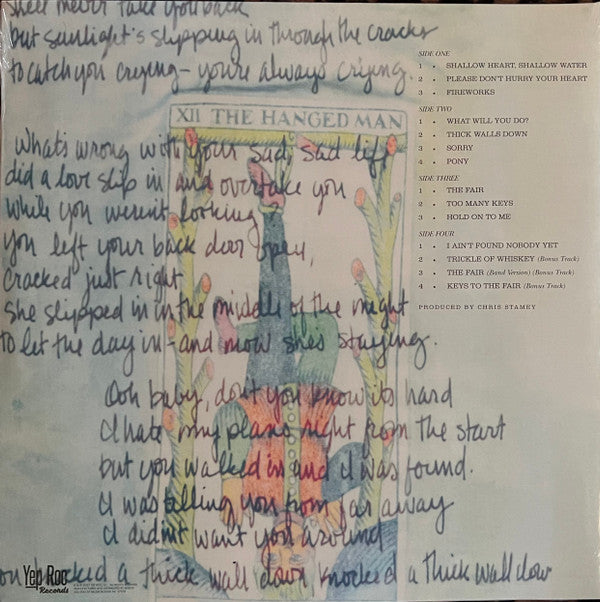 She'll never take you back
but sunlight's slipping in through the cracks
to catch you crying - you're always crying.
XII THE HANGED MAN
What's wrong with your sad, sad life
did a love slip in and overtake you
while you weren't looking?
You left your back door open,
cracked just right
She slipped in in the middle of the night
to let the day in - and now she's staying.
Ooh baby, don't you know its hard
I hate my plans right from the start
but you walked in and I was found.
I was telling you from far away
I didn't want you around
knocked a thick wall down knocked a thick wall dow
SIDE ONE
1 • SHALLOW HEART, SHALLOW WATER
2 • PLEASE DON'T HURRY YOUR HEART
3 • FIREWORKS
SIDE TWO
1 • WHAT WILL YOU DO?
2 • THICK WALLS DOWN
3 • SORRY
4 • PONY
SIDE THREE
1 • THE FAIR
2 • TOO MANY KEYS
3 • HOLD ON TO ME
SIDE FOUR
1 • I AIN'T FOUND NOBODY YET
2 • TRICKLE OF WHISKEY (Bonus Track)
3 • THE FAIR (Band Version) (Bonus Track)
4 • KEYS TO THE FAIR (Bonus Track)
PRODUCED BY CHRIS STAMEY
Yep Roc
Records